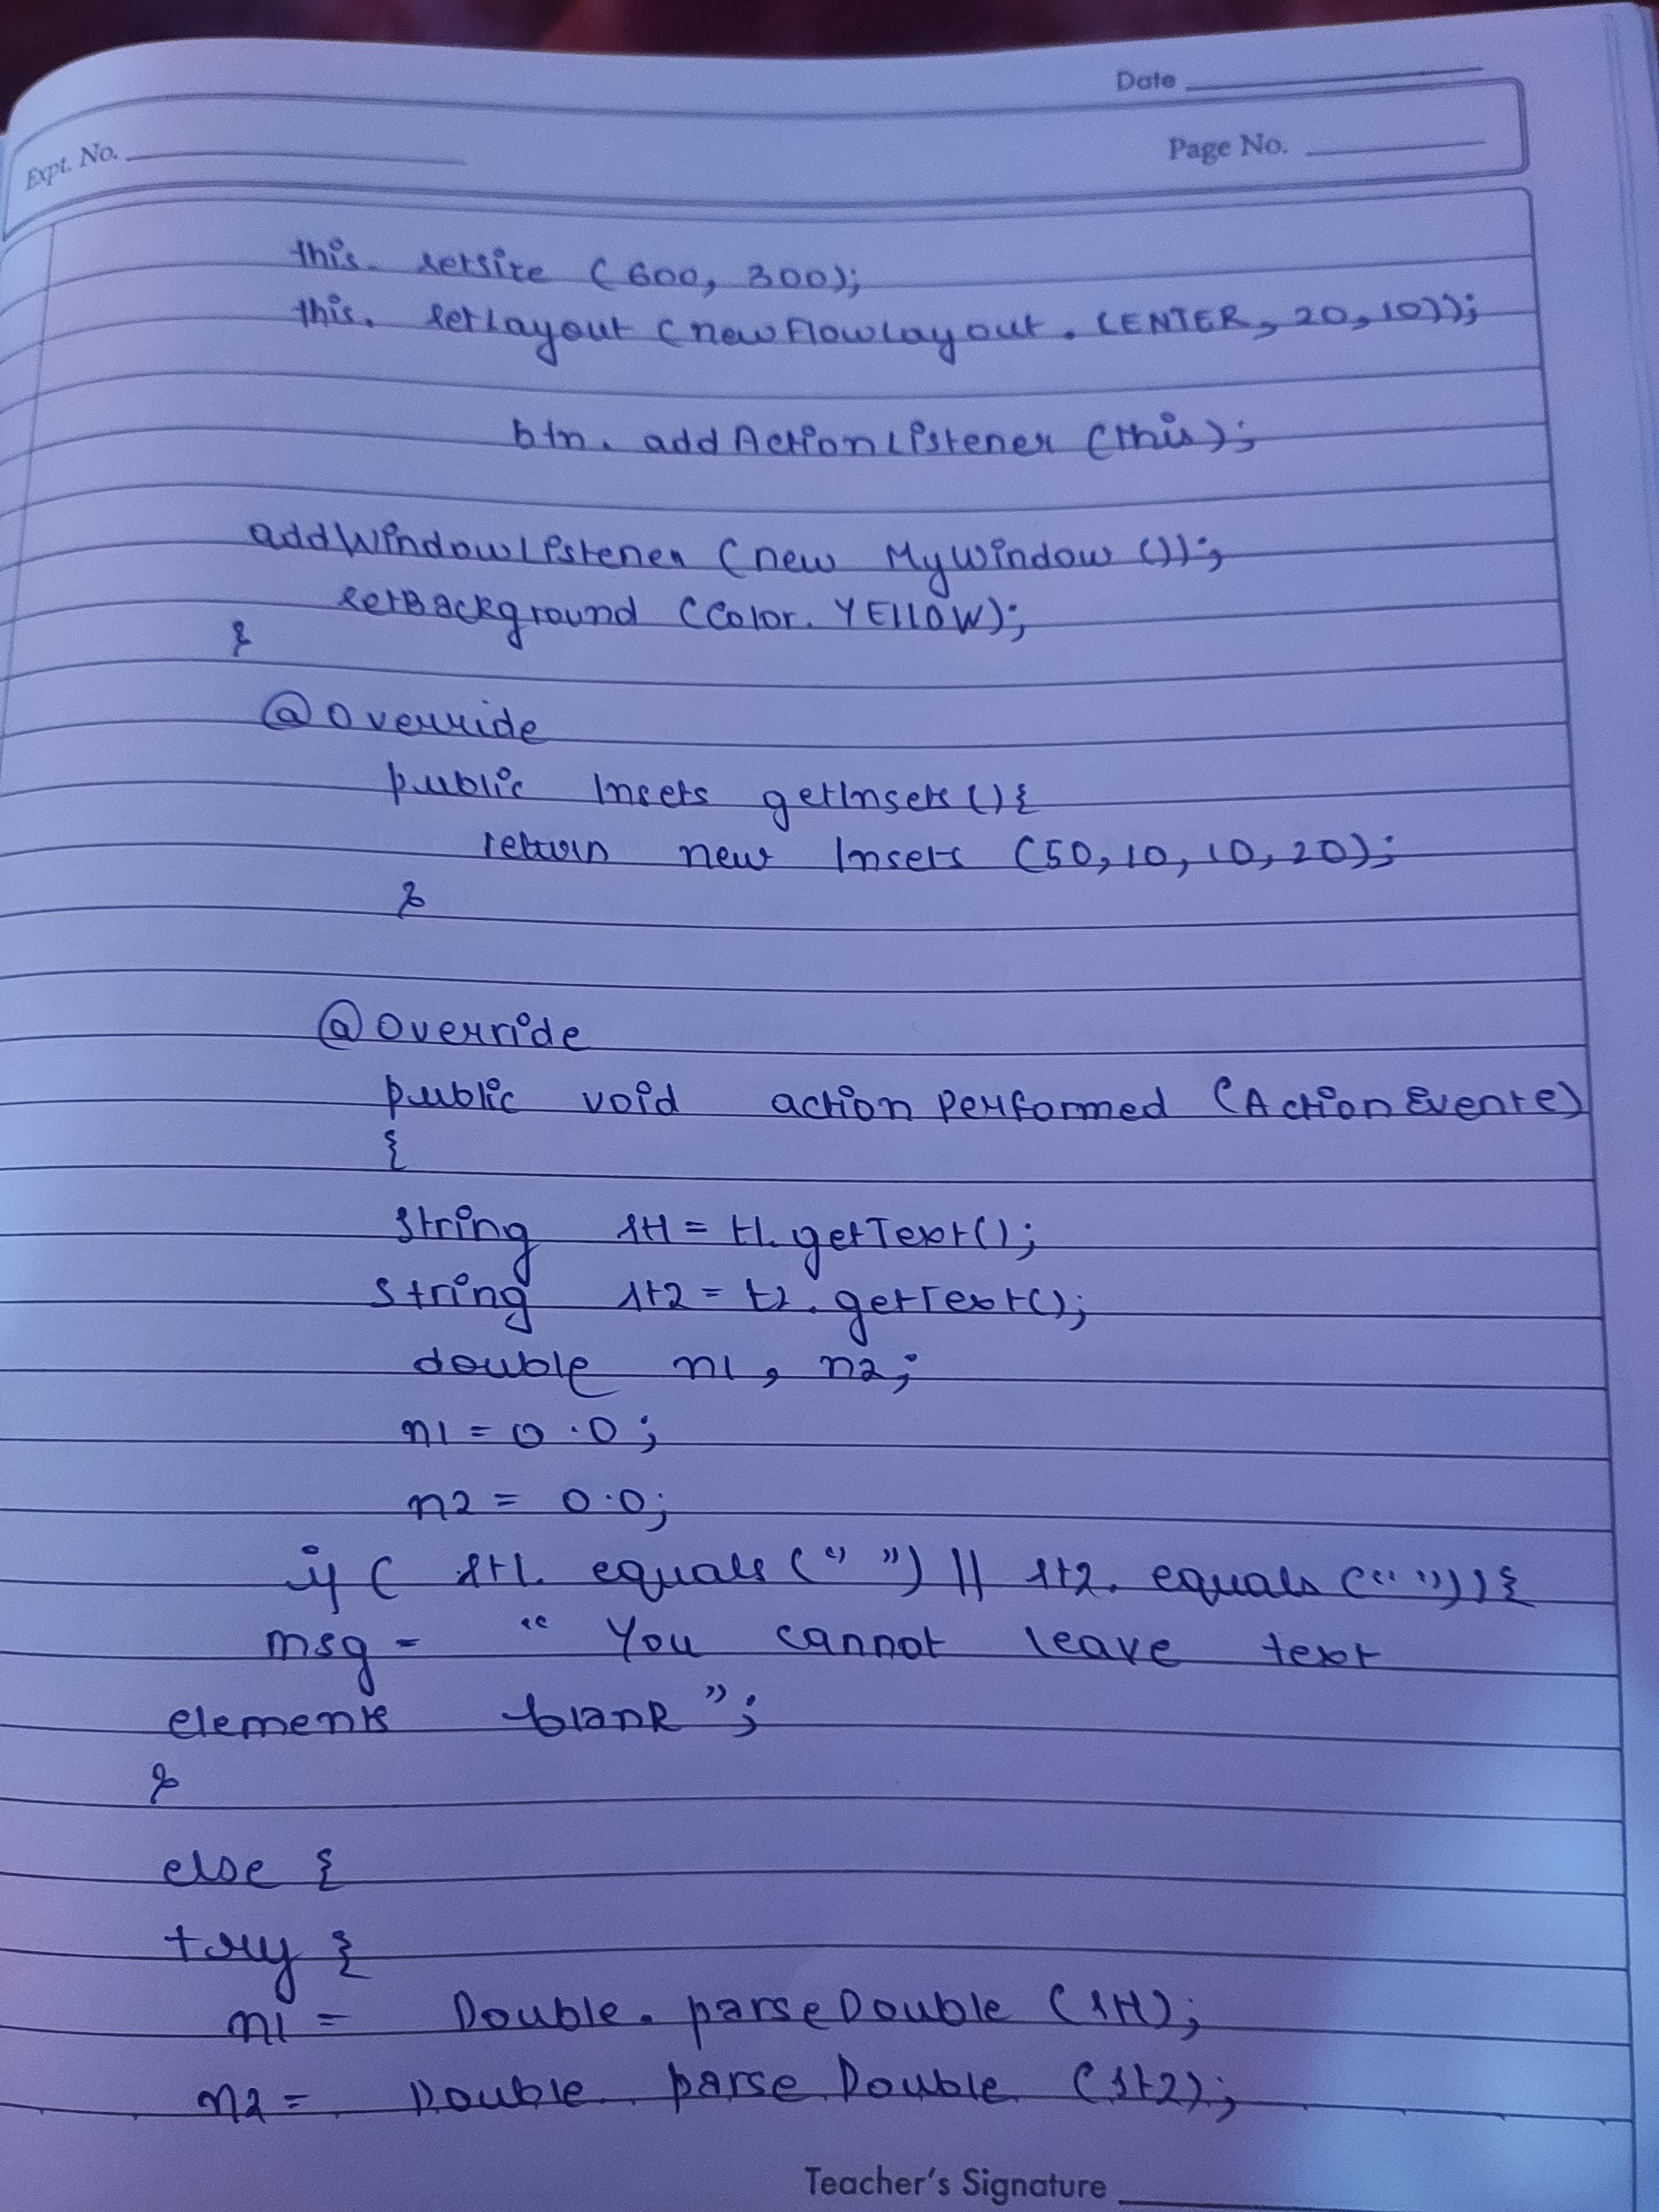 Date
Expt. No.
Page No.
this. setsize (600, 300);
this. setLayout (new FlowLayout. CENTER, 20, 10));
btn. addActionListener (this);
addWindowListener (new MyWindow ());
setBackground (Color. YELLOW);
}
@Override
public Insets getInsets(){
return new Insets (50, 10, 10, 20);
}
@Override
public void actionPerformed (ActionEvent e)
{
string st1 = t1. getText();
string st2 = t2. getText();
double n1, n2;
n1 = 0.0;
n2 = 0.0;
if ( st1. equals (" ") || st2. equals (" ")){
msg = " You cannot leave text
elements blank ";
}
else {
try {
n1 = Double. parseDouble (st1);
n2 = Double. parse Double (st2);
Teacher's Signature